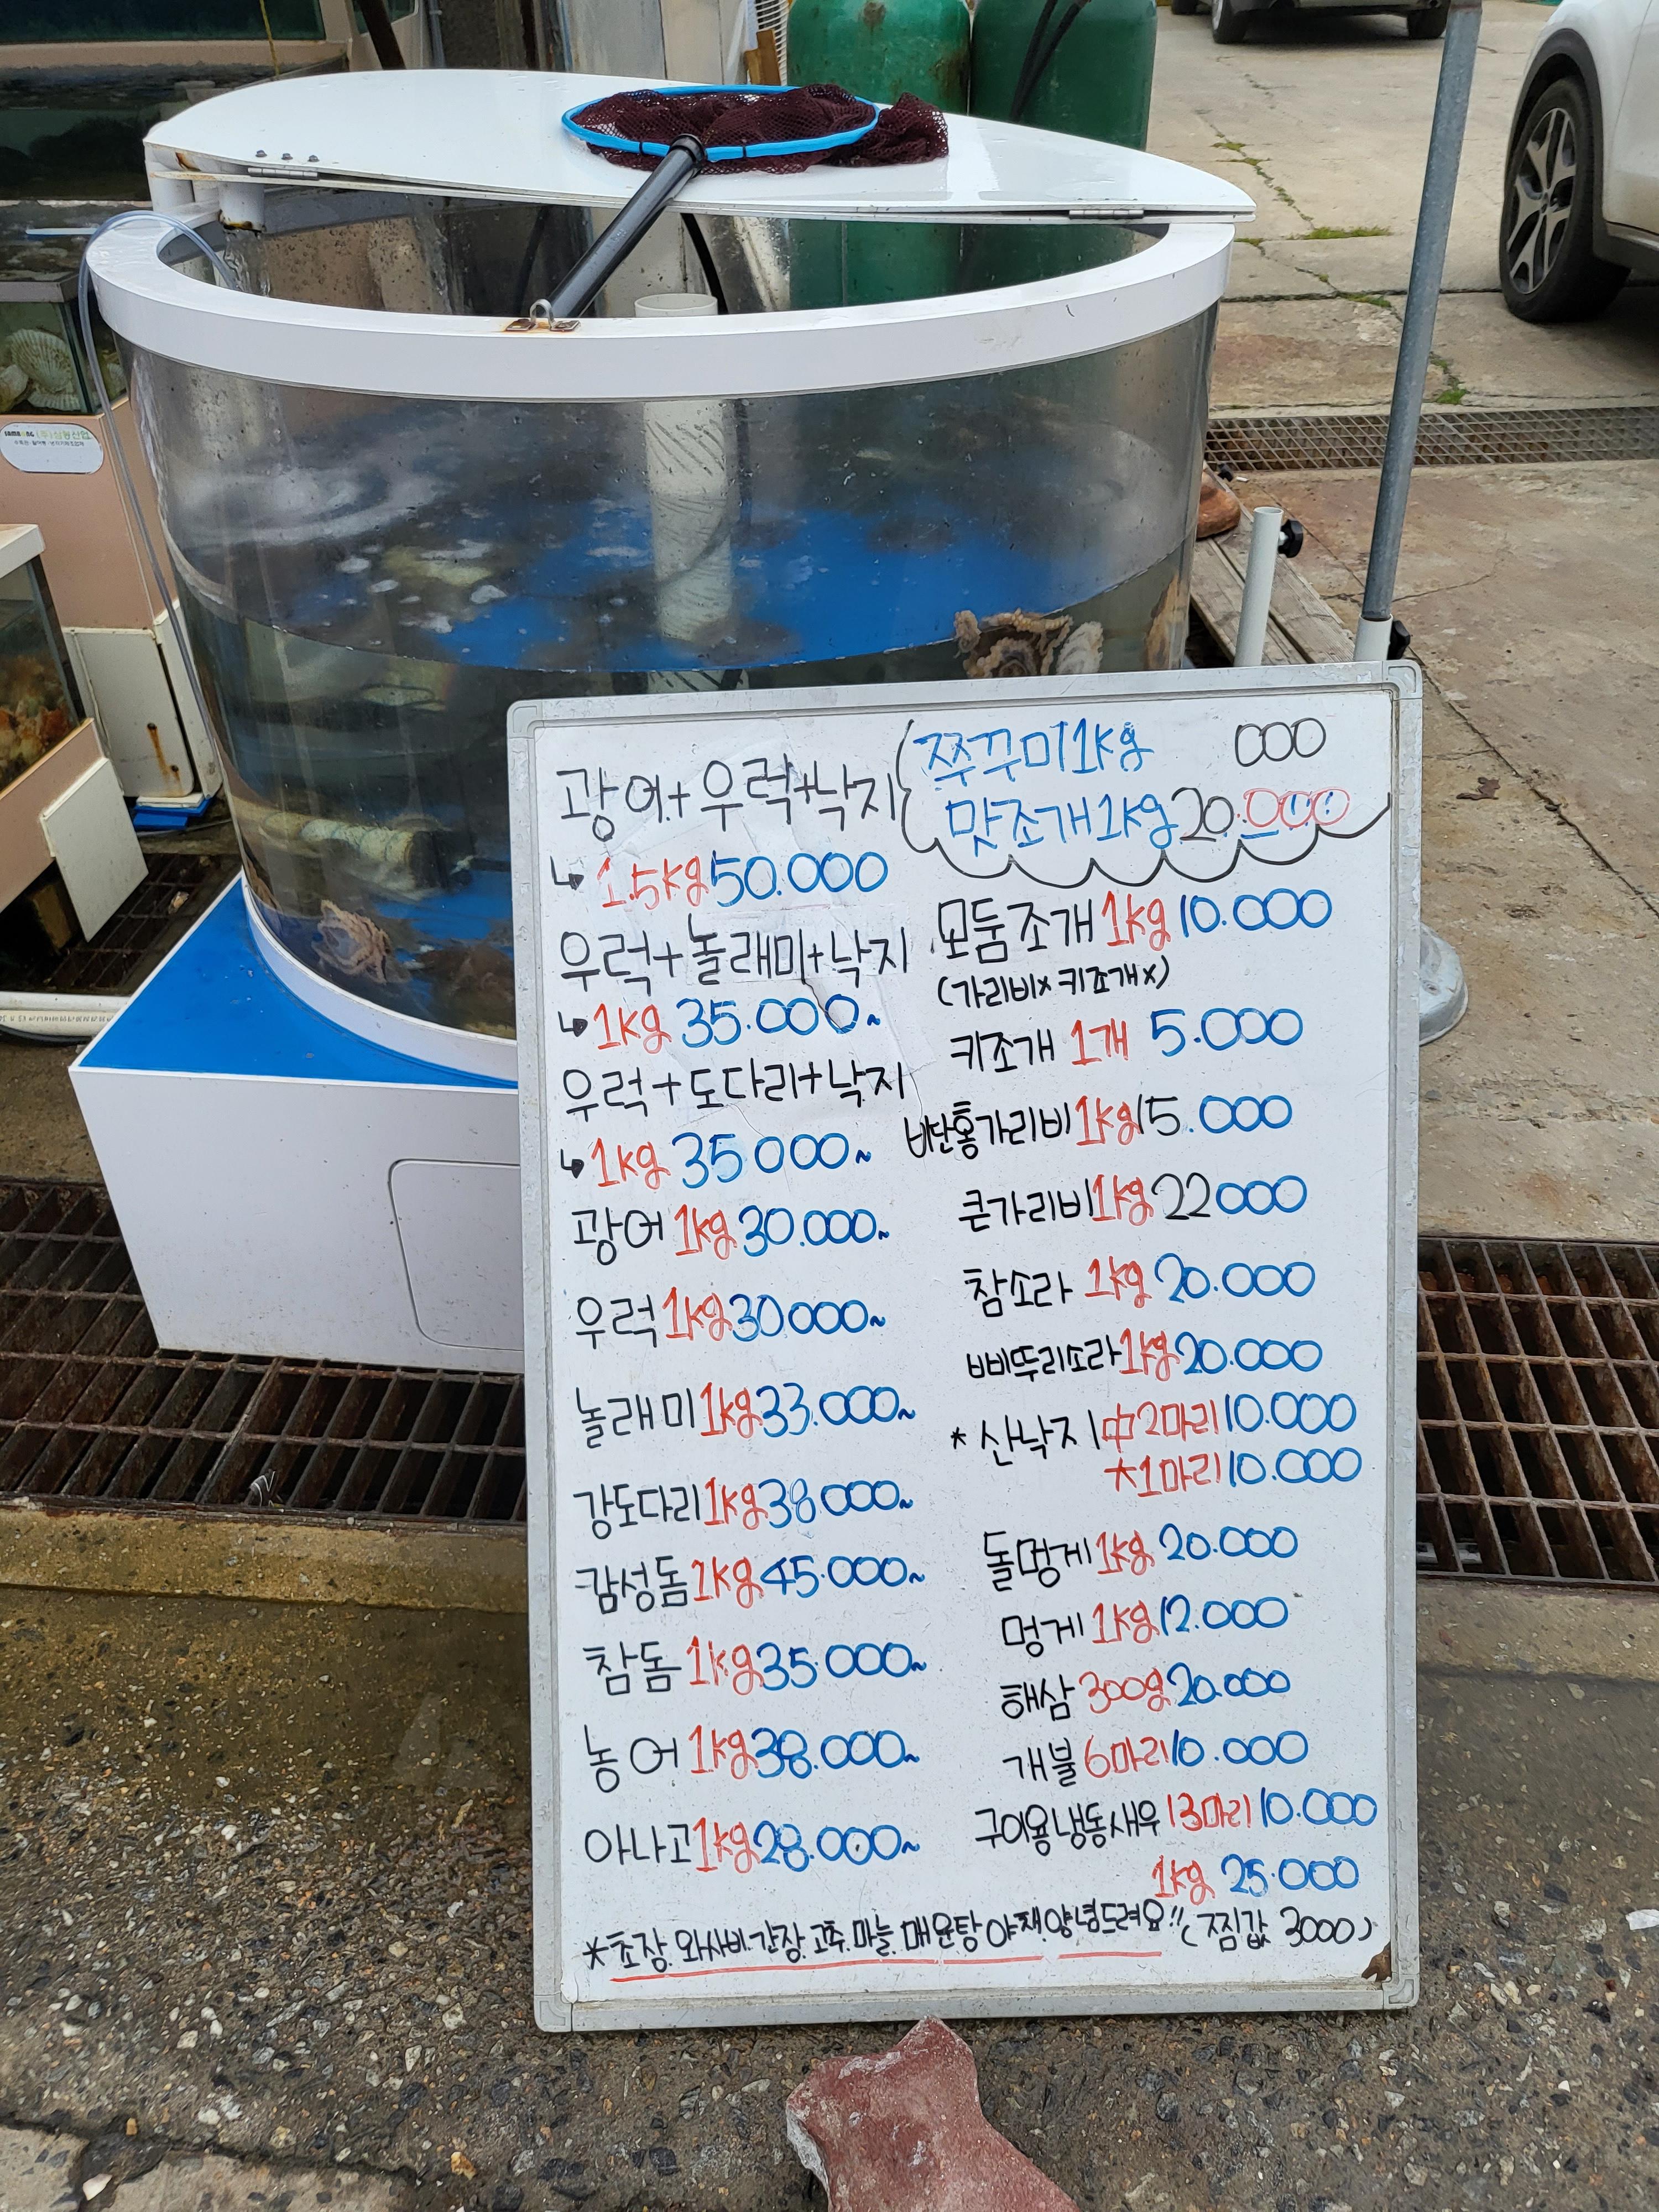 광어+우럭+낙지
↳ 1.5kg 50.000
우럭+놀래미+낙지
↳ 1kg 35.000~
우럭+도다리+낙지
↳ 1kg 35000~
광어 1kg 30.000~
우럭 1kg 30000~
놀래미 1kg 33.000~
강도다리 1kg 38000~
감성돔 1kg 45.000~
참돔 1kg 35.000~
농어 1kg 38.000~
아나고 1kg 28.000~
쭈꾸미 1kg 000
맛조개 1kg 20.000
모둠조개 1kg 10.000
(가리비x 키조개x)
키조개 1개 5.000
비단홍가리비 1kg 15.000
큰가리비 1kg 22000
참소라 1kg 20.000
삐뚜리소라 1kg 20.000
* 산낙지 中2마리 10.000
大1마리 10.000
돌멍게 1kg 20.000
멍게 1kg 12.000
해삼 300g 20.000
개불 6마리 10.000
구이용냉동새우 13마리 10.000
1kg 25.000
*초장.와사비.간장.고추.마늘.매운탕야채양념드려요!! (찜값 3000)